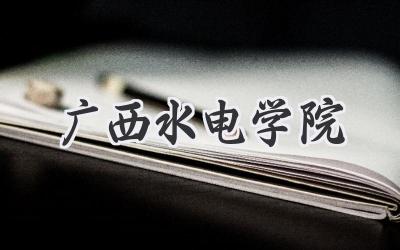 广西水电学院